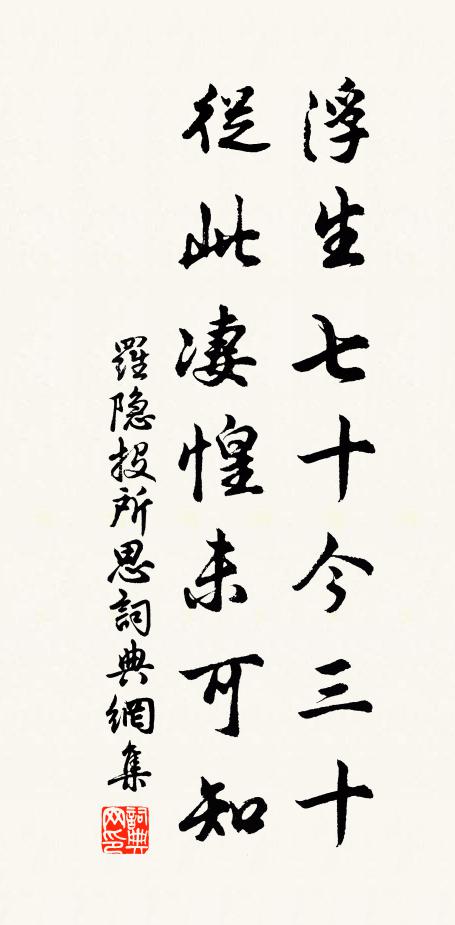 浮生七十今三十
從此凄惶未可知
羅隐投所思詞典網集
詞典网印